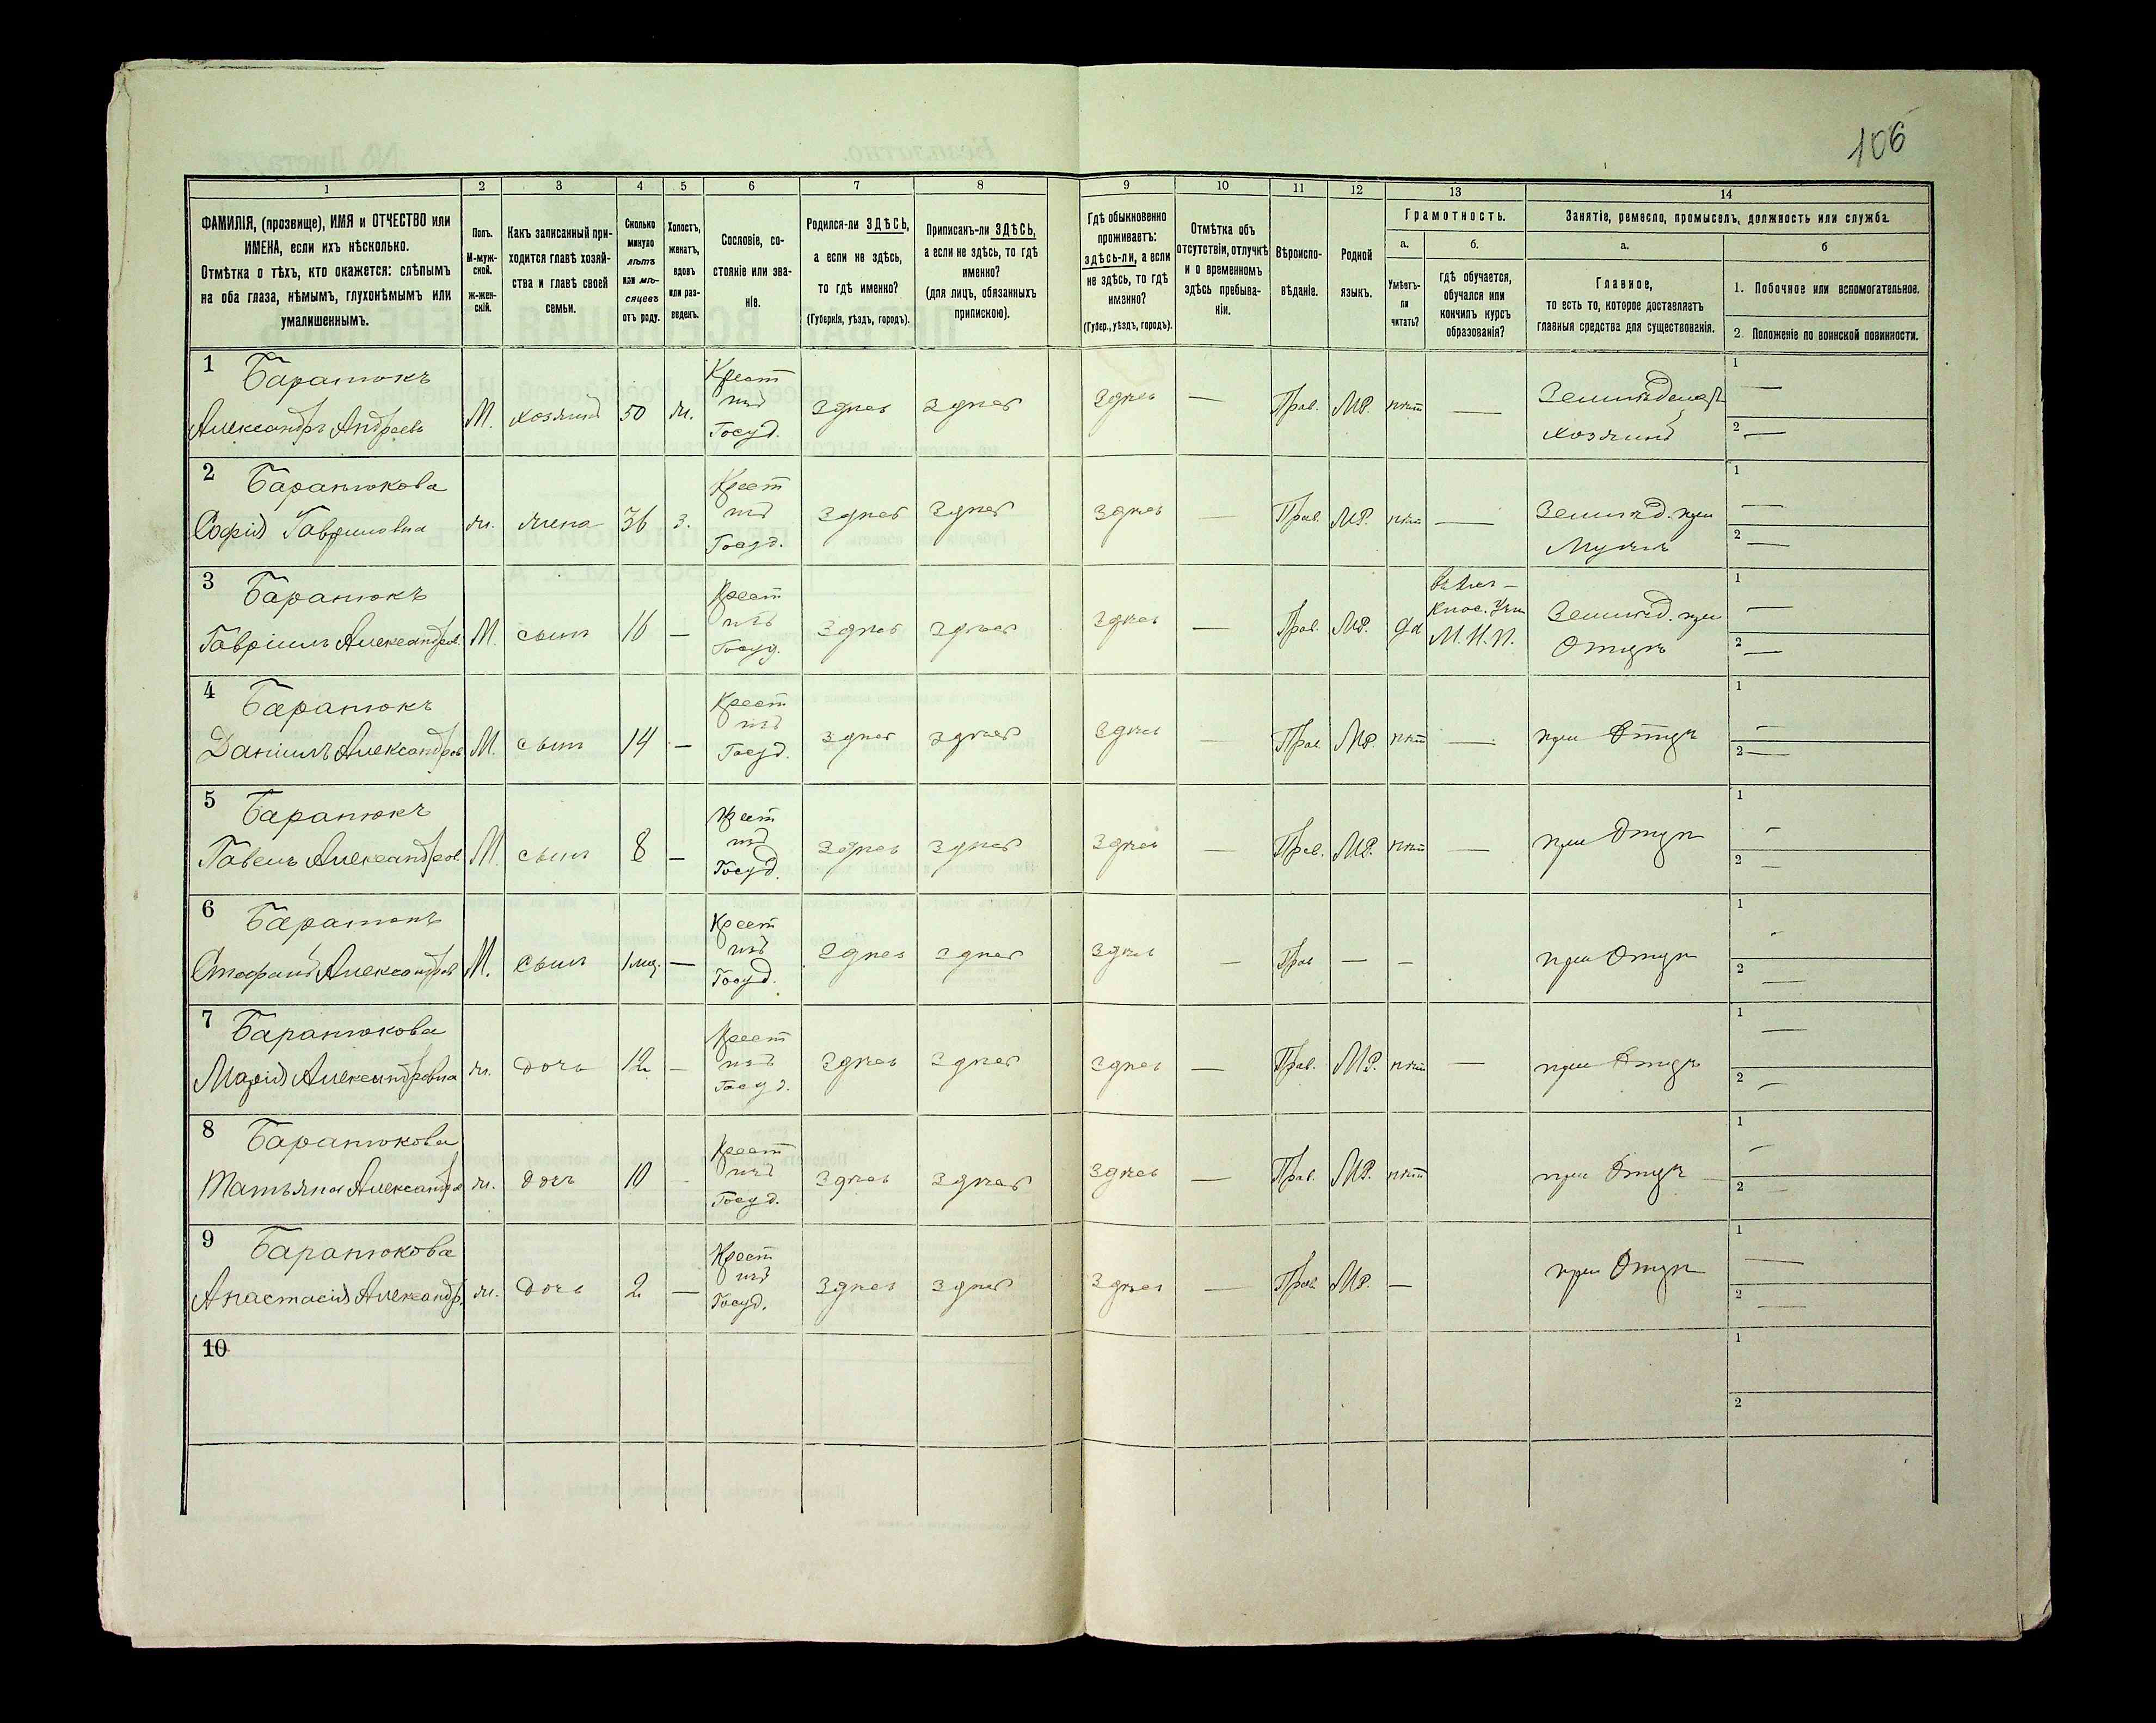 106
1 2 3 4 5 6 7 8 9 10 11 12 13 14
ФАМИЛІЯ, (прозвище), ИМЯ и ОТЧЕСТВО или
ИМЕНА, если ихъ нѣсколько.
Отмѣтка о тѣхъ, кто окажется: слѣпымъ
на оба глаза, нѣмымъ, глухонѣмымъ или
умалишеннымъ.
Полъ.
М-муж-
ской.
ж-жен-
скій.
Какъ записанный при-
ходится главѣ хозяй-
ства и главѣ своей
семьи.
Сколько
минуло
лѣтъ
или мѣ-
сяцевъ
отъ роду.
Холостъ,
женатъ,
вдовъ
или раз-
веденъ.
Сословіе, со-
стояніе или зва-
ніе.
Родился-ли ЗДѢСЬ,
а если не здѣсь,
то гдѣ именно?
(Губернія, уѣздъ, городъ).
Приписанъ-ли ЗДѢСЬ,
а если не здѣсь, то гдѣ
именно?
(для лицъ, обязанныхъ
припискою).
Гдѣ обыкновенно
проживаетъ:
здѣсь-ли, а если
не здѣсь, то гдѣ
именно?
(Губер., уѣздъ, городъ).
Отмѣтка объ
отсутствіи, отлучкѣ
и о временномъ
здѣсь пребыва-
ніи.
Вѣроиспо-
вѣданіе.
Родной
языкъ.
Грамотность.
а. б.
Умѣетъ-
ли
читать?
гдѣ обучается,
обучался или
кончилъ курсъ
образованія?
Занятіе, ремесло, промыселъ, должность или служба.
а. б
Главное,
то есть то, которое доставляетъ
главныя средства для существованія.
1. Побочное или вспомогательное.
2. Положеніе по воинской повинности.
1 Баранюкъ
Александръ Андреевъ М. хозяинъ 50 ж. Крест изъ Госуд. Здѣсь Здѣсь Здѣсь — Прав. МР. нѣт — Земледѣлецъ хозяинъ 1 — 2 —
2 Баранюкова
Софія Гавриловна ж. жена 36 з. Крест изъ Госуд. Здѣсь Здѣсь Здѣсь — Прав. МР. нѣт — Землед. при Мужѣ 1 — 2 —
3 Баранюкъ
Гавріилъ Александров. М. сынъ 16 — Крест изъ Госуд. Здѣсь Здѣсь Здѣсь — Прав. МР. да М. Н. П. Землед. при Отцѣ 1 — 2 —
4 Баранюкъ
Даніилъ Александров М. сынъ 14 — Крест изъ Госуд. Здѣсь Здѣсь Здѣсь — Прав МР. нѣт — при Отцѣ 1 — 2 —
5 Баранюкъ
Павелъ Александров. М. сынъ 8 — Крест изъ Госуд. Здѣсь Здѣсь Здѣсь — Прав. МР. нѣт — при Отцѣ 1 — 2 —
6 Баранюкъ
Стефанъ Александров М. сынъ 1 мц. — Крест изъ Госуд. Здѣсь Здѣсь Здѣсь — Прав — — при Отцѣ 1 - 2 —
7 Баранюкова
Марія Александровна ж. дочь 12 — Крест изъ Госуд. Здѣсь Здѣсь Здѣсь — Прав. МР. нѣт — при Отцѣ 1 — 2 —
8 Баранюкова
Татьяна Александр ж. дочь 10 - Крест изъ Госуд. Здѣсь Здѣсь Здѣсь — Прав. МР. нѣт при Отцѣ — 1 — 2 —
9 Баранюкова
Анастасія Александр. ж. дочь 2 — Крест изъ Госуд. Здѣсь Здѣсь Здѣсь — Прав МР. — при Отцѣ 1 — 2 —
10 1 2